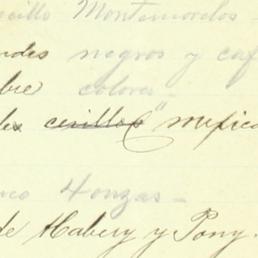 cillo Montemorelos
ndes negros y caf
bre colores-
les cerillos "mexica
nco 4 onzas-
de Habery y Pony.